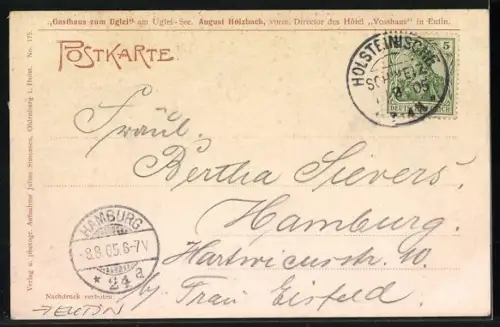 „Gasthaus zum Uglei“ am Uglei-See. August Holzbach, vorm. Director des Hôtel „Vosshaus“ in Eutin.
POSTKARTE
5
DEUTSCHES REICH
HOLSTEINISCHE
SCHWEIZ
Fräul.
Bertha Sievers.
Hamburg.
Hartwicusstr. 10
b/ Frau Eisfeld.
HAMBURG
-8.8.05.6-7V
* 24 a
Verlag u. photogr. Aufnahme Julius Simonsen, Oldenburg i. Holst. No. 175.
Nachdruck verboten.